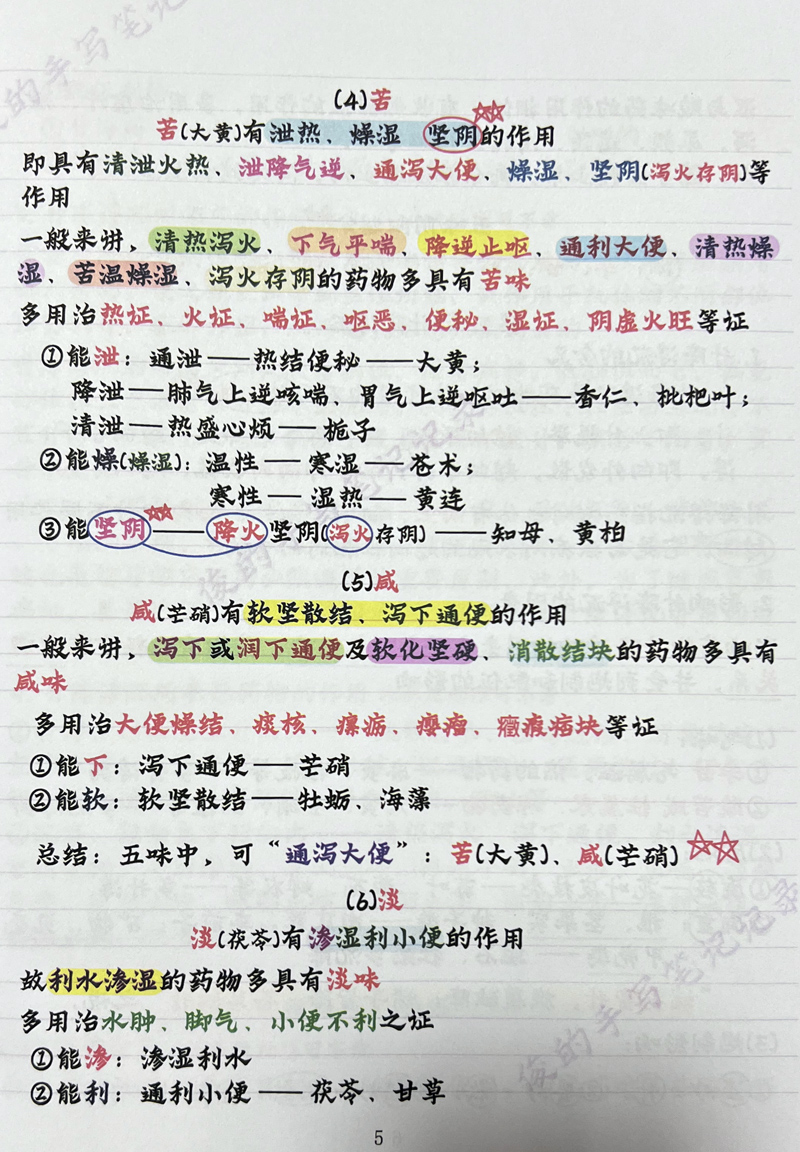 (4)苦
苦(大黄)有泄热、燥湿 坚阴的作用
即具有清泄火热、泄降气逆、通泻大便、燥湿、坚阴(泻火存阴)等
作用
一般来讲，清热泻火、下气平喘、降逆止呕、通利大便、清热燥
湿、苦温燥湿、泻火存阴的药物多具有苦味
多用治热证、火证、喘证、呕恶、便秘、湿证、阴虚火旺等证
①能泄：通泄——热结便秘——大黄；
降泄——肺气上逆咳喘、胃气上逆呕吐——杏仁、枇杷叶；
清泄——热盛心烦——栀子
②能燥(燥湿)：温性——寒湿——苍术；
寒性——湿热——黄连
③能坚阴——降火坚阴(泻火存阴)——知母、黄柏
(5)咸
咸(芒硝)有软坚散结、泻下通便的作用
一般来讲，泻下或润下通便及软化坚硬、消散结块的药物多具有
咸味
多用治大便燥结、痰核、瘰疬、瘿瘤、癥瘕痞块等证
①能下：泻下通便——芒硝
②能软：软坚散结——牡蛎、海藻
总结：五味中，可“通泻大便”：苦(大黄)、咸(芒硝)
(6)淡
淡(茯苓)有渗湿利小便的作用
故利水渗湿的药物多具有淡味
多用治水肿、脚气、小便不利之证
①能渗：渗湿利水
②能利：通利小便——茯苓、甘草
5
俊的手写笔记记录